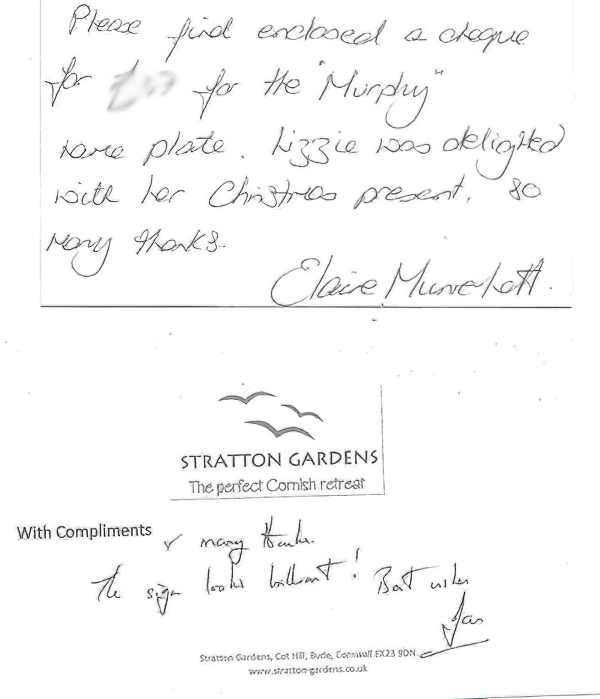 Please find enclosed a cheque
for for the "Murphy"
name plate. Lizzie was delighted
with her Christmas present. So
many thanks.
Elaine
STRATTON GARDENS
The perfect Cornish retreat
With Compliments & many thanks.
The sign looks brilliant! Best wishes
Jan
Stratton Gardens, Cot Hill, Bude, Cornwall EX23 9DN.
www.stratton-gardens.co.uk